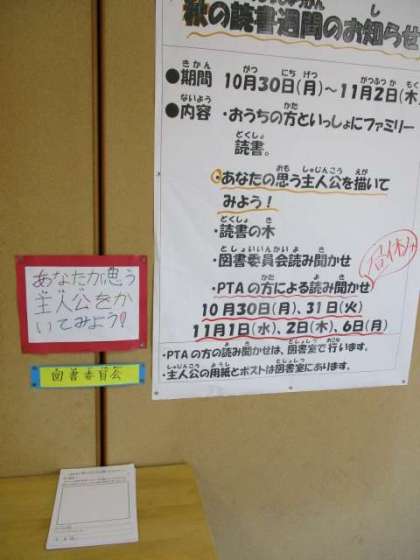 秋の読書週間のお知らせ
●期間 10月30日(月)～11月2日(木
●内容 ・おうちの方といっしょにファミリー
読書。
・あなたの思う主人公を描いて
みよう！
・読書の木
・図書委員会読み聞かせ
・PTAの方による読み聞かせ
昼休み
10月30日(月)、31日(火)
11月1日(水)、2日(木)、6日(月)
・PTAの方の読み聞かせは、図書室で行います。
・主人公の用紙とポストは図書室にあります。
あなたが思う
主人公をか
いてみよう！
図書委員会